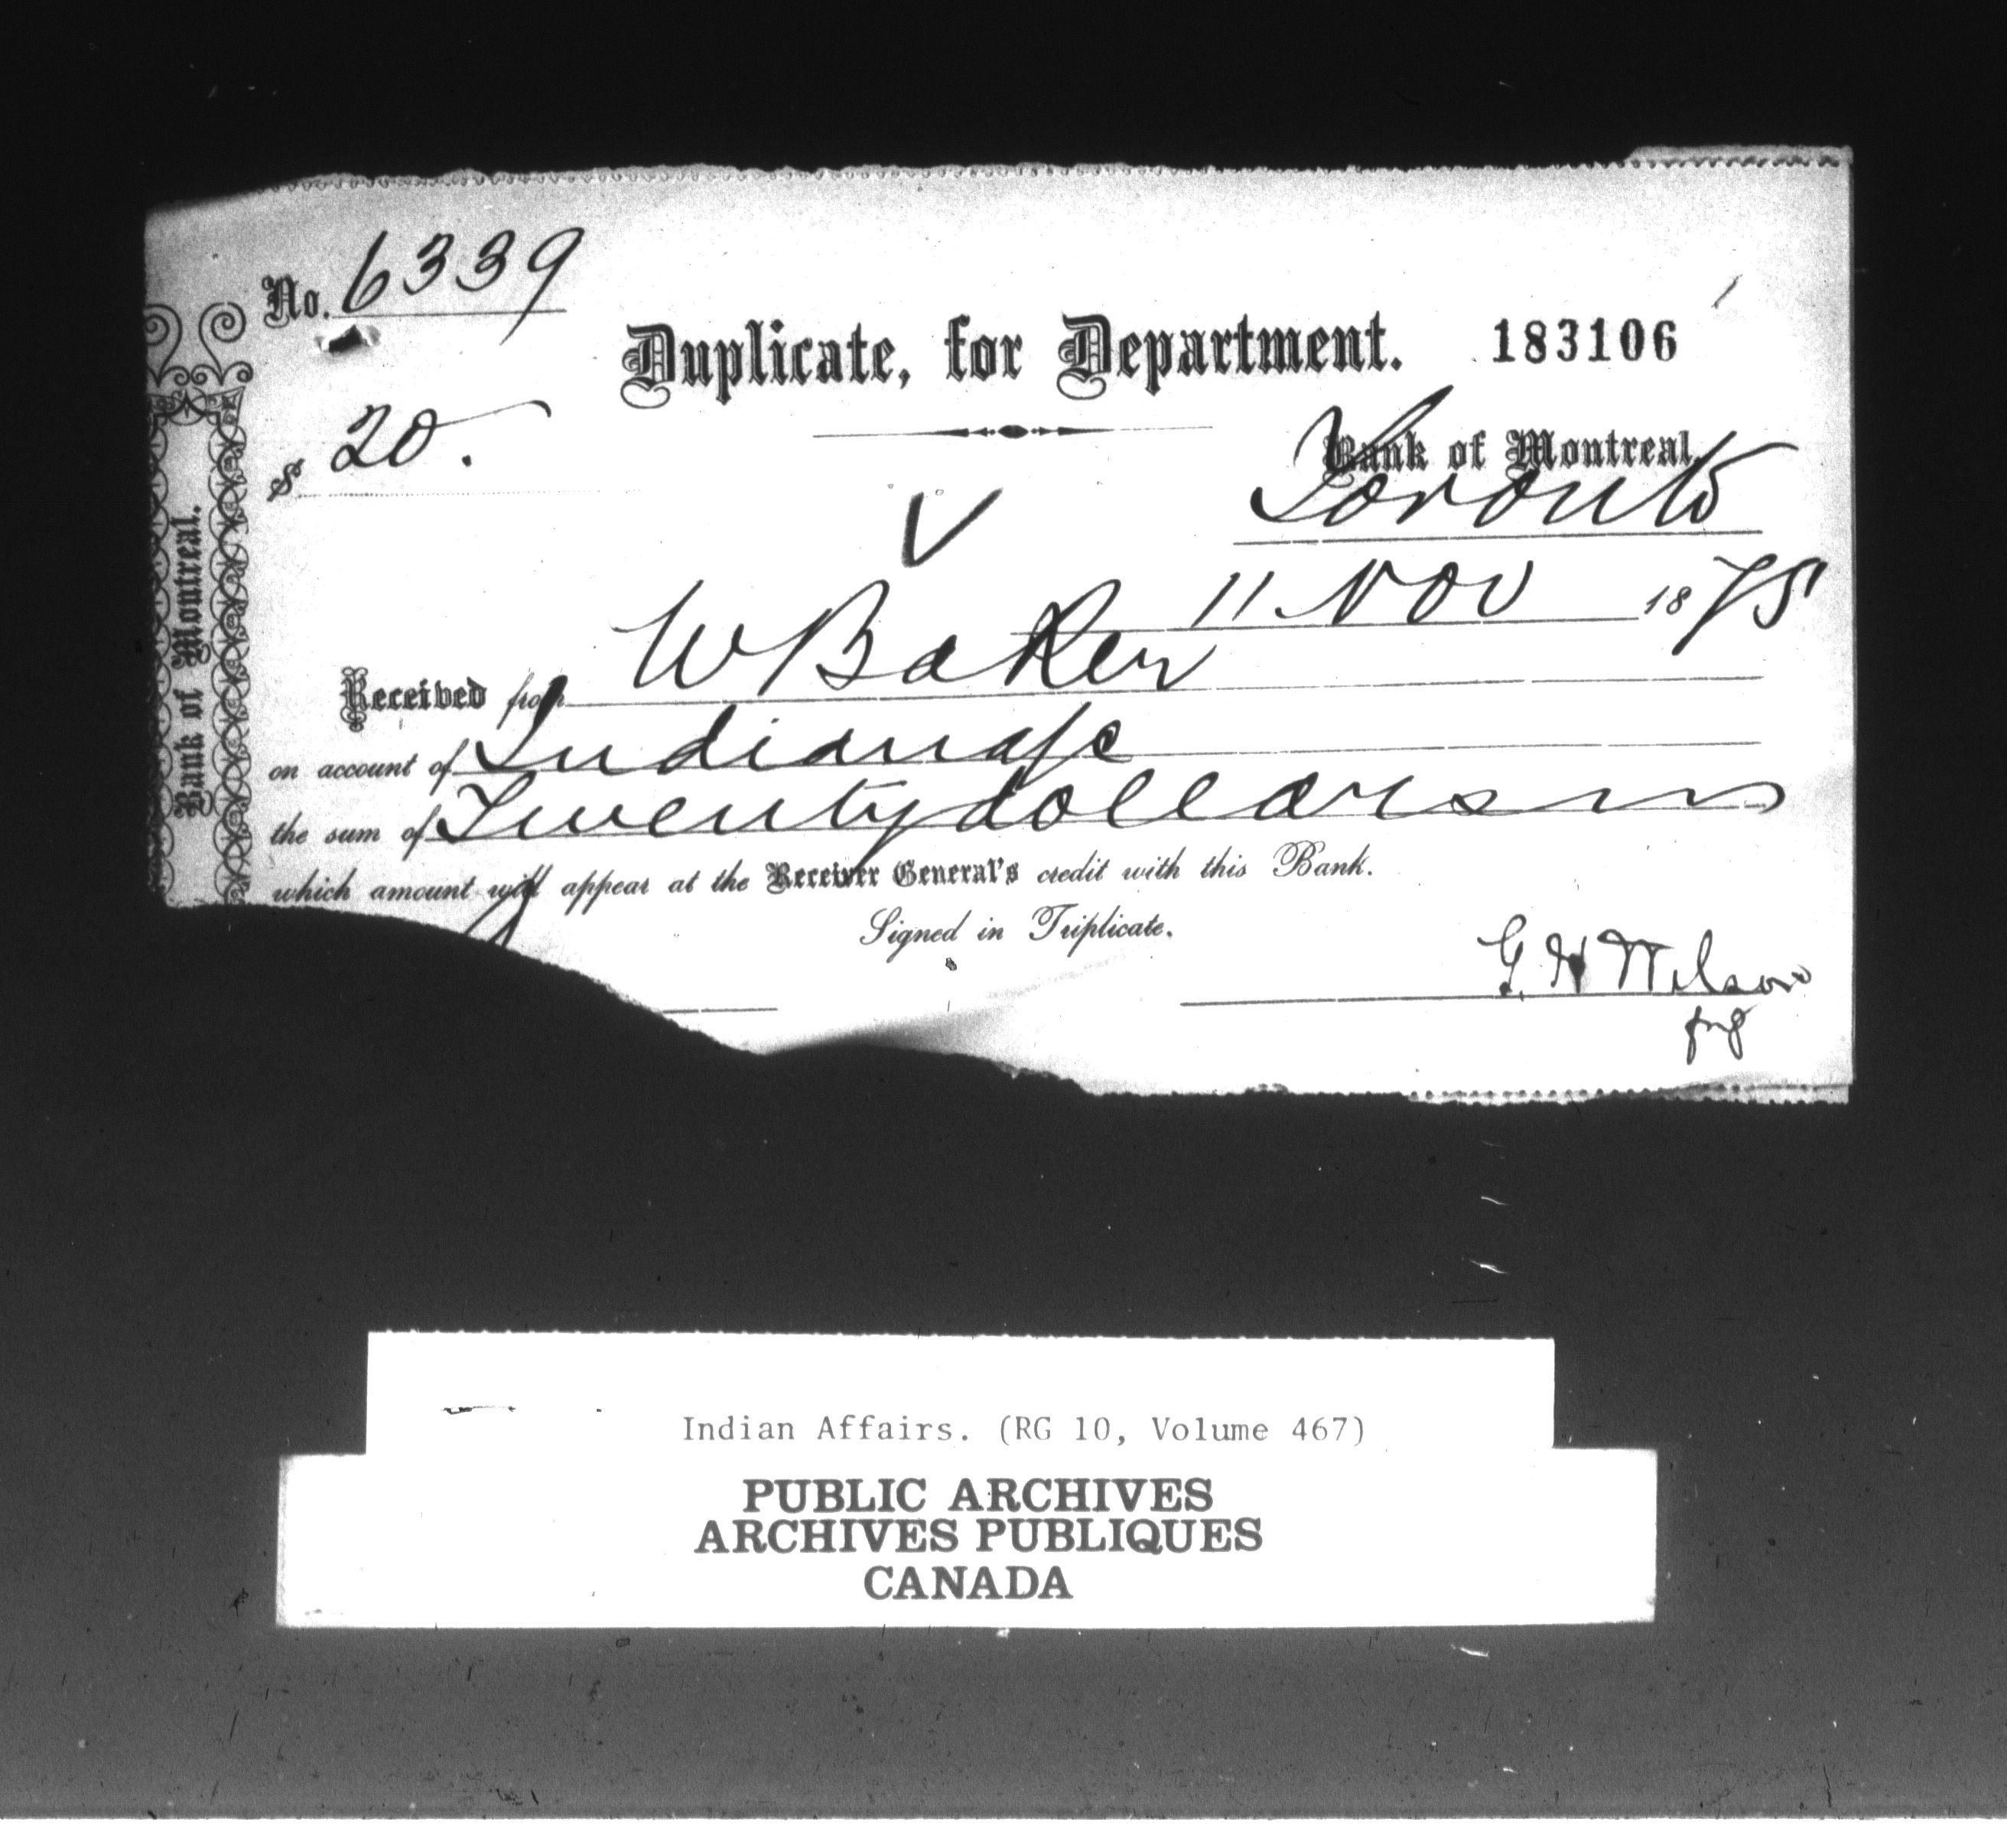 No. 6339
Duplicate, for Department. 183106
$ 20.
Bank of Montreal,
Toronto
11 Nov 1875
Received from W Baker
on account of Indian a/c
the sum of Twenty dollars
which amount will appear at the Receiver General's credit with this Bank.
Signed in Triplicate.
G. H Wilson
Bank of Montreal.
Indian Affairs. (RG 10, Volume 467)
PUBLIC ARCHIVES
ARCHIVES PUBLIQUES
CANADA